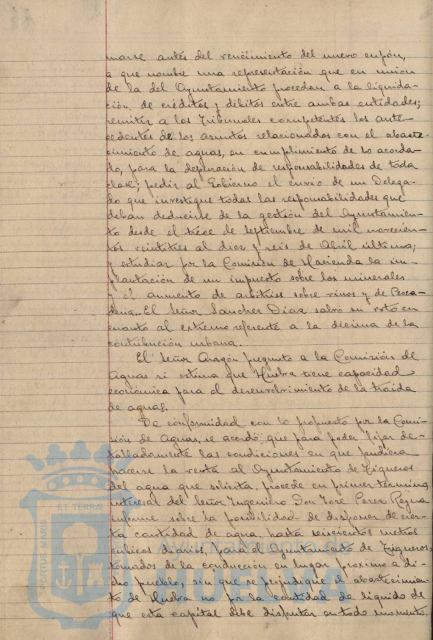 marse antes del vencimiento del nuevo cupón,
a que nombre una representación que en union
de la del Ayuntamiento procedan a la liquida-
ción de créditos y débitos entre ambas entidades;
remitir a los Tribunales competentes los ante-
cedentes de los asuntos relacionados con el abaste-
cimiento de aguas, en cumplimiento de lo acorda-
do, para la depuración de responsabilidades de toda
clase; pedir al Gobierno el envio de un Delega-
do que investigue todas las responsabilidades que
deban deducirse de la gestión del Ayuntamien-
to desde el trece de Septiembre de mil novecien-
tos veintitres al diez y seis de Abril último;
y estudiar por la Comisión de Hacienda la im-
plantación de un impuesto sobre los minerales
y el aumento de arbitrios sobre vinos y de Pesca-
deria. El Señor Sanchez Diaz salvó su voto en
cuanto al extremo referente a la décima de la
contribución urbana.
El Señor Aragón pregunto a la Comisión de
Aguas si estima que Huelva tiene capacidad
económica para el desenvolvimiento de la traida
de aguas.
De conformidad con lo propuesto por la Comi-
sión de Aguas, se acordó, que para poder fijar de-
talladamente las condiciones en que pudiera
hacerse la venta al Ayuntamiento de Trigueros
del agua que solicita, procede en primer término
interesar del Señor Ingeniero Don José Perez Reyna
informe sobre la posibilidad de disponer de cier-
ta cantidad de agua, hasta seiscientos metros
cúbicos diarios, para el Ayuntamiento de Trigueros,
tomados de la conducción en lugar proximo a di-
cho pueblo, sin que se perjudique el abastecimien-
to de Huelva ni por la cantidad de líquido de
que esta capital debe disfrutar en todo momento.
PORTUS MARIS
ET TERRAE